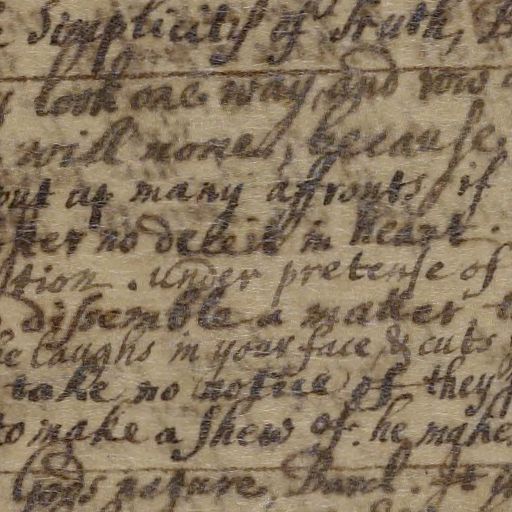 Simplicity of Truth,
look one way, and row
will none, because
put up many affronts if
no deceit in heart.
tion. under pretense of
dissemble a matter
he laughs in your face, & cuts
take no notice of they
to make a shew of. he makes
It